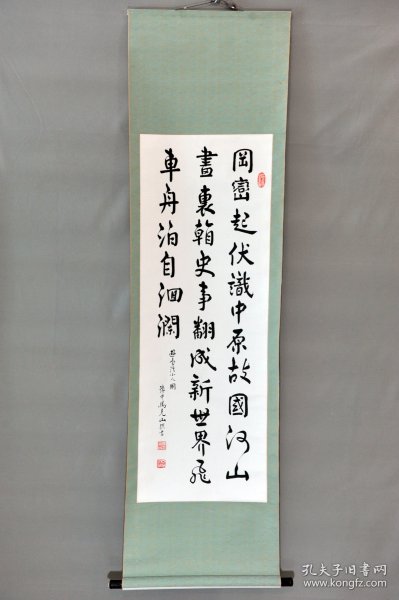 岡巒起伏識中原故國河山
畫裏翰史事翻成新世界飛
車舟泊自洄瀾
孔夫子旧书网
www.kongfz.com